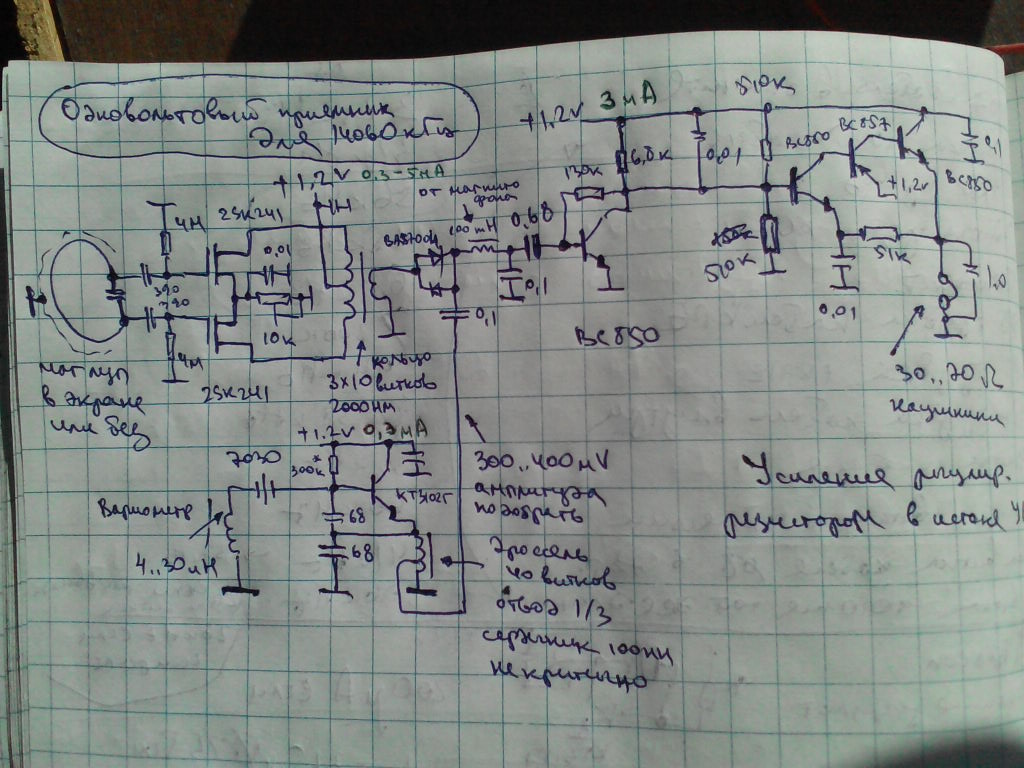 Одновольтовый приемник
для 14060 кГц
+1,2V 0.3-5мА
4М
2SK241
0,01
390
390
10К
4М
2SK241
маг луп
в экране
или без
кольцо
3х10 витков
2000НМ
от магнито
фона
100mH
0,68
0,1
0,1
+1,2V 3мА
130К
6,8К
0,01
510К
510К
BC850
BC850
BC857
+1,2V
BC850
0,1
51К
0,01
1,0
30..70Ω
наушники
+1.2V 0,3мА
300К
*
КТ3102Г
68
68
Вариометр
4..30мкН
300..400mV
амплитуда
подобрать
Дроссель
40 витков
отвод 1/3
сердечник 100НН
некритично
Усиление регулир.
резистором в истоке